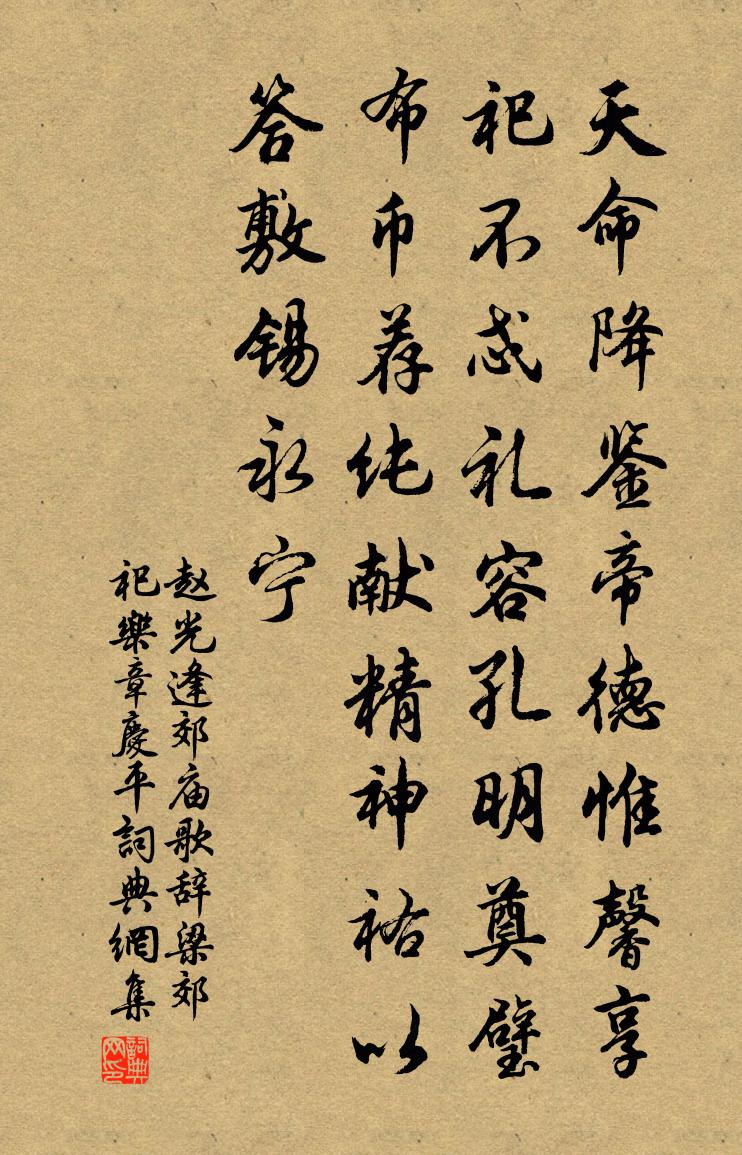 天命降鉴帝德惟馨享
祀不忒礼容孔明奠璧
布币荐纯献精神祐以
答敷锡永宁
赵光逢郊庙歌辞梁郊
祀樂章慶平詞典網集
詞典
网印